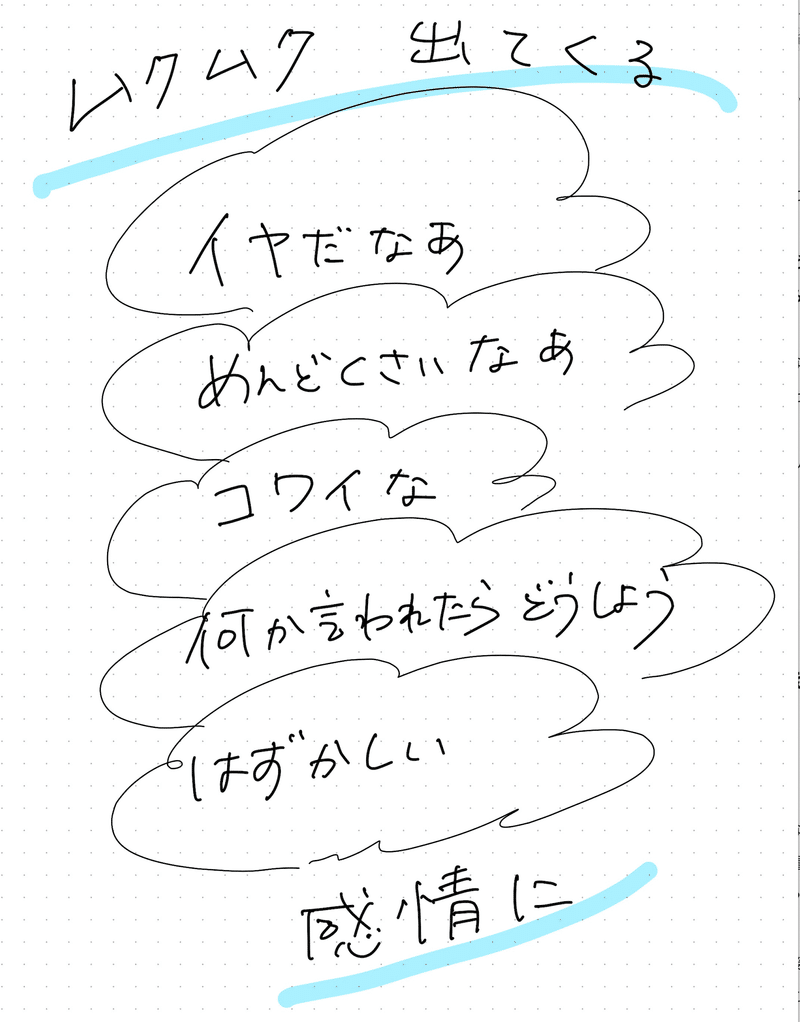 ムクムク 出てくる
イヤだなあ
めんどくさいなあ
コワイな
何か言われたらどうしよう
はずかしい
感情に